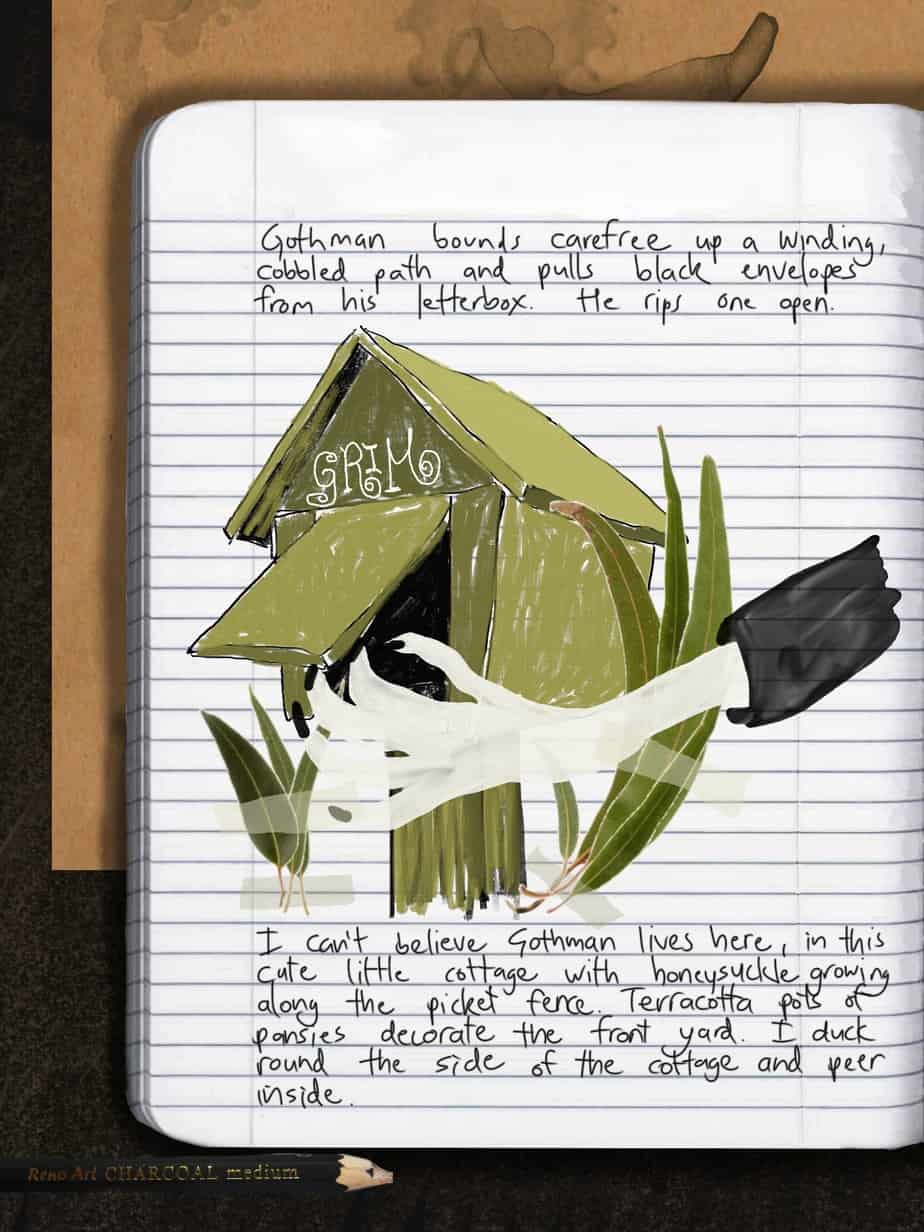 Gothman bounds carefree up a winding,
cobbled path and pulls black envelopes
from his letterbox. He rips one open.
GRIM
I can't believe Gothman lives here, in this
cute little cottage with honeysuckle growing
along the picket fence. Terracotta pots of
pansies decorate the front yard. I duck
round the side of the cottage and peer
inside.
Reno Art CHARCOAL medium